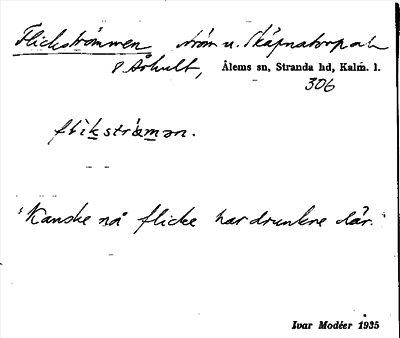 Flickströmmen ström u. Skäpnatorp och
S Århult, Ålems sn, Stranda hd, Kalm. l.
306
flikströmən.
"Kanske nå flicke har drunkne där."
Ivar Modéer 1935